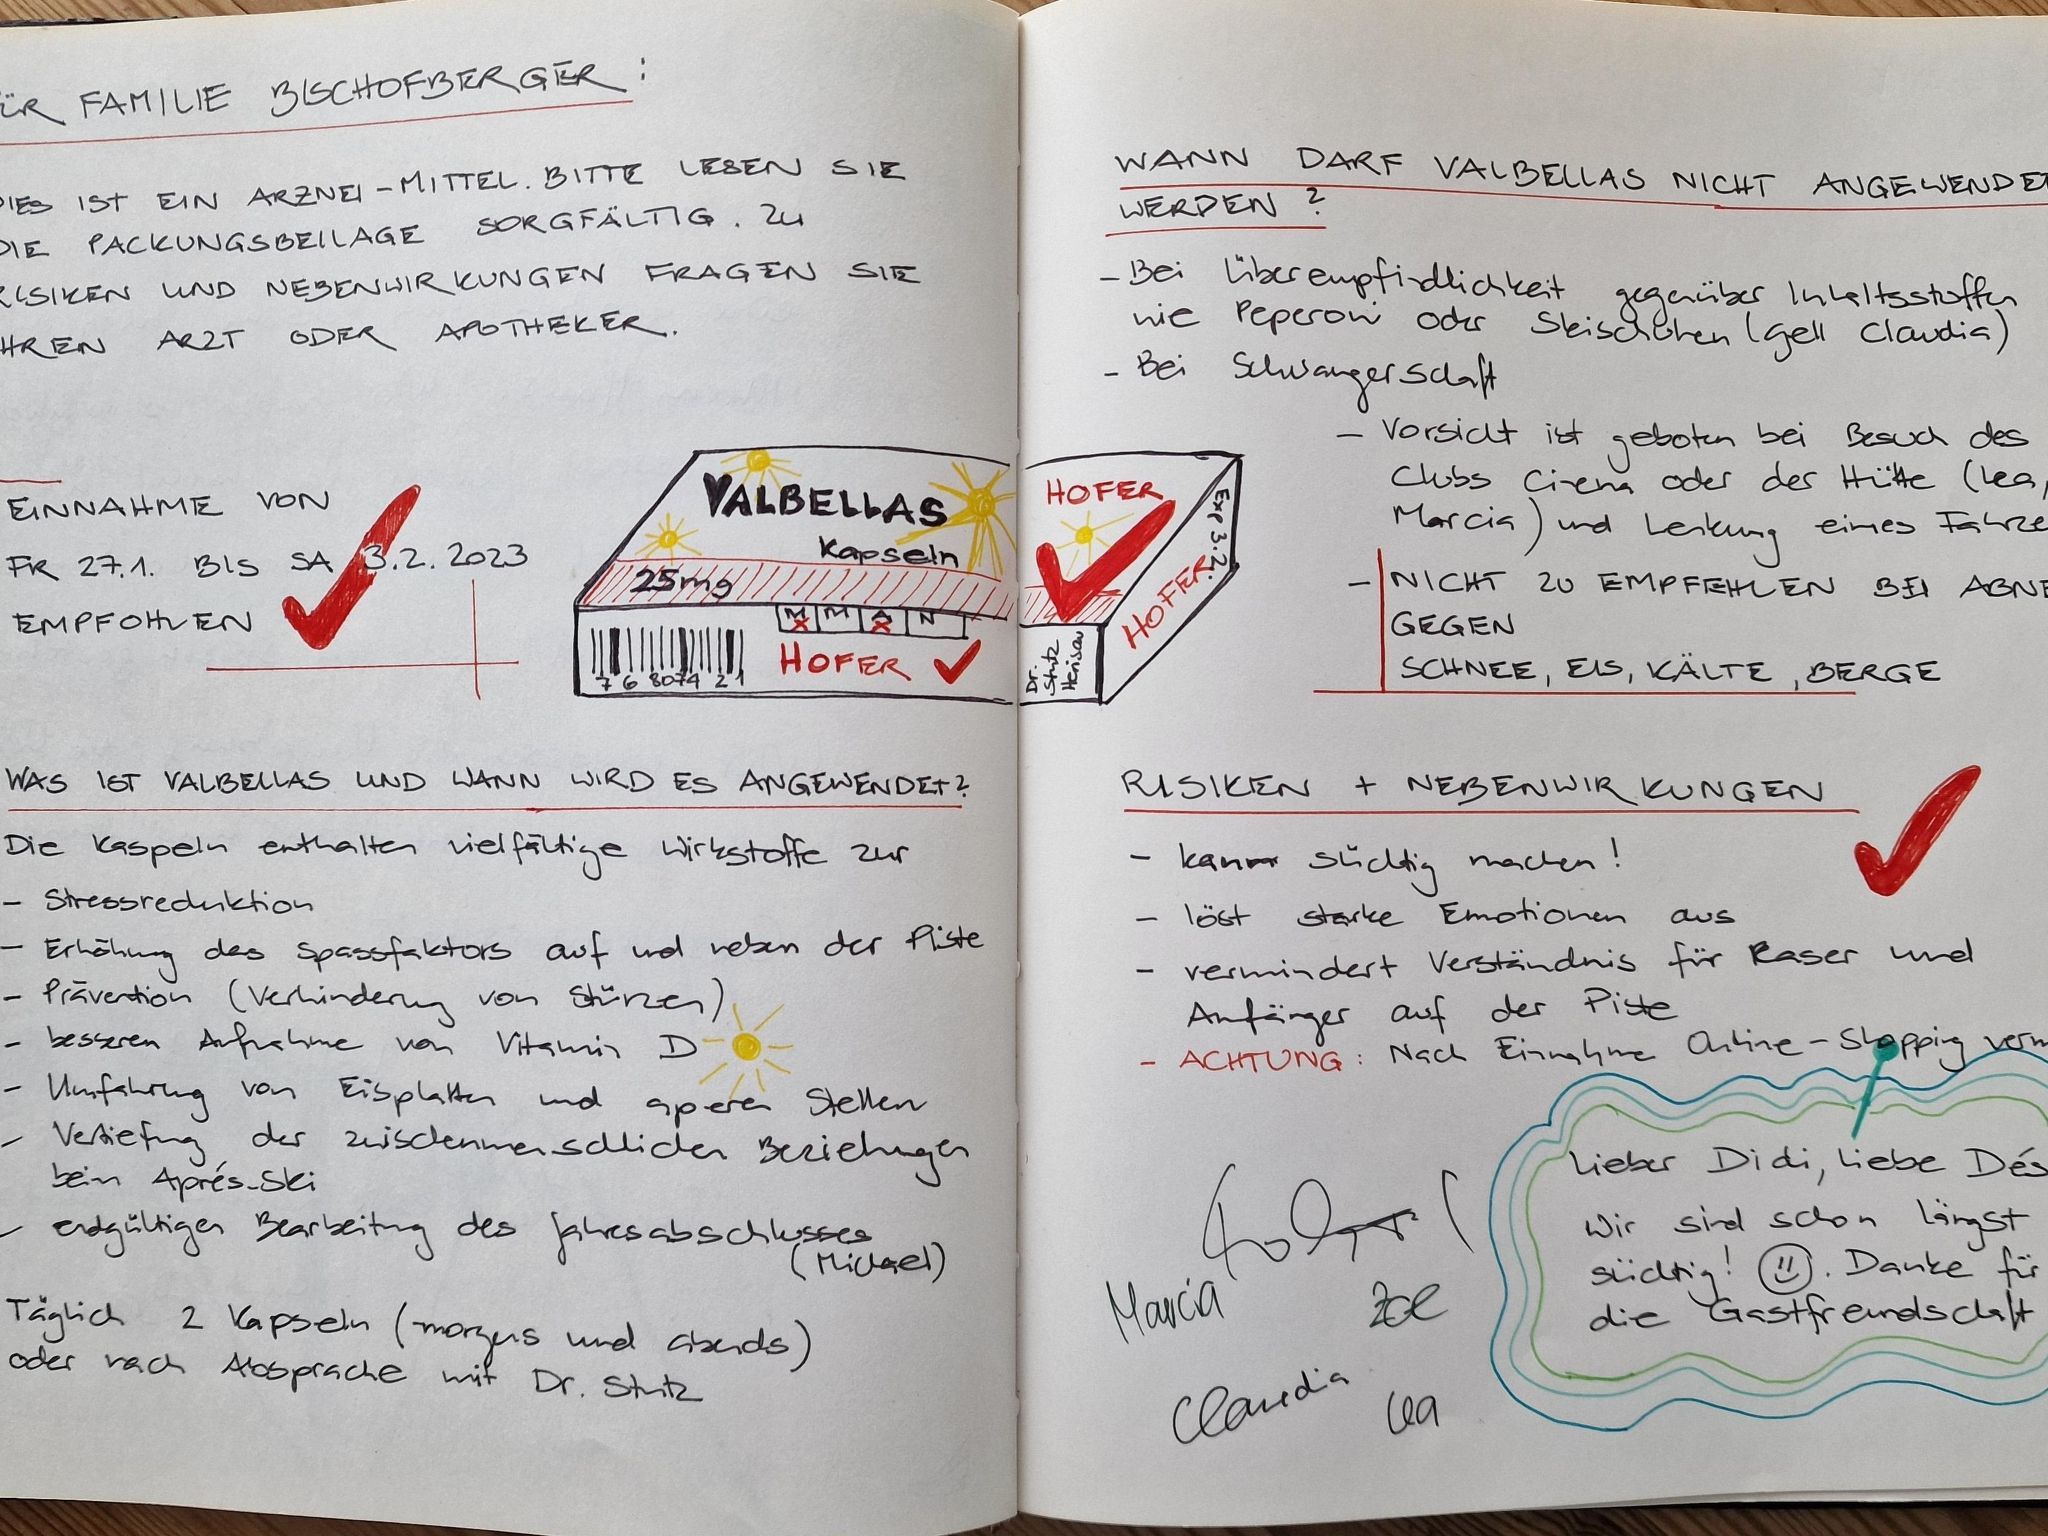 ÜR FAMILIE BISCHOFBERGER:
DIES IST EIN ARZNEI-MITTEL. BITTE LESEN SIE
DIE PACKUNGSBEILAGE SORGFÄLTIG. ZU
RISIKEN UND NEBENWIRKUNGEN FRAGEN SIE
HREN ARZT ODER APOTHEKER.
EINNAHME VON
FR 27.1. BIS SA 3.2.2023
EMPFOHLEN
VALBELLAS
Kapseln
25mg
M M A N
7 68074 21
HOFER
HOFER
Exp 3.2.
HOFER
Dr.
Stutz
Herisau
WAS IST VALBELLAS UND WANN WIRD ES ANGEWENDET?
Die Kaspeln enthalten vielfältige Wirkstoffe zur
- Stressreduktion
- Erhöhung des Spassfaktors auf und neben der Piste
- Prävention (Verhinderung von Stürzen)
- besseren Aufnahme von Vitamin D
- Umfahrung von Eisplatten und aperen Stellen
- Vertiefung der zwischenmenschlichen Beziehungen
beim Aprés-Ski
- endgültigen Bearbeitung des Jahresabschlusses
(Michael)
Täglich 2 Kapseln (morgens und abends)
oder nach Absprache mit Dr. Stutz
WANN DARF VALBELLAS NICHT ANGEWENDE
WERDEN?
- Bei Überempfindlichkeit gegenüber Inhaltsstoffen
wie Peperoni oder Skischuhen (gell Claudia)
- Bei Schwangerschaft
- Vorsicht ist geboten bei Besuch des
Clubs Cinema oder der Hütte (Lea,
Marcia) und Lenkung eines Fahrze
- NICHT ZU EMPFEHLEN BEI ABNE
GEGEN
SCHNEE, EIS, KÄLTE, BERGE
RISIKEN + NEBENWIRKUNGEN
- kann süchtig machen!
- löst starke Emotionen aus
- vermindert Verständnis für Raser und
Anfänger auf der Piste
- ACHTUNG: Nach Einnahme Online-Shopping verm
Lieber Didi, liebe Dés
Wir sind schon längst
süchtig! Danke für
die Gastfreundschaft
Marcia Zoe
Claudia Lea